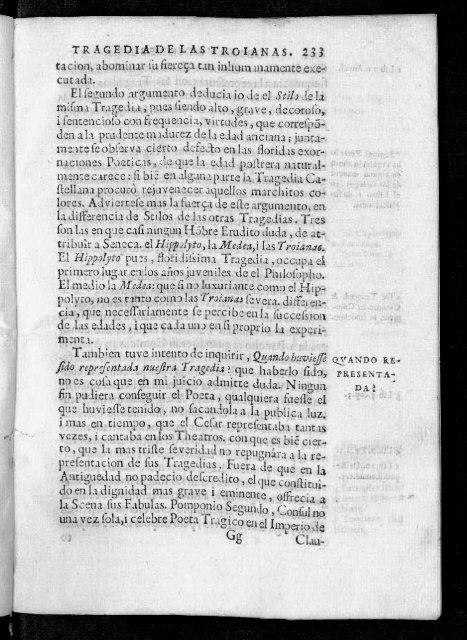 TRAGEDIA DE LAS TROIANAS. 233
tacion, abominar su fiereça tan inhumanamente exe-
cutada.
El segundo argumento deducia io de el Stilo de la
misma Tragedia, pues siendo alto, grave, decoroso,
i sentencioso con frequencia, virtudes, que correspõ-
den a la prudente madurez de la edad anciana; junta-
mente se observa cierto defecto en las floridas exor-
naciones Poeticas, de que la edad postrera natural-
mente carece: si biẽ en alguna parte la Tragedia Ca-
stellana procurò rejuvenecer aquellos marchitos co-
lores. Adviertese mas la fuerça de este argumento, en
la differencia de Stilos de las otras Tragedias. Tres
son las en que casi ningun Hõbre Erudito duda, de at-
tribuir a Seneca. el Hippolyto, la Medea, i las Troianas.
El Hippolyto pues, floridissima Tragedia, occupa el
primero lugar en los años juveniles de el Philosopho.
El medio la Medea: que si no luxuriante como el Hip-
polyto, no es tanto como las Troianas severa. differen-
cia, que necessariamente se percibe en la succession
de las edades, i que cada uno en si proprio la experi-
menta.
Tambien tuve intento de inquirir, Quando huviesse
sido representada nuestra Tragedia? que haberlo sido,
no es cosa que en mi juicio admitte duda. Ningun
fin pudiera conseguir el Poeta, qualquiera fuesse el
que huviesse tenido, no sacandola a la publica luz,
i mas en tiempo, que el Cesar representaba tantas
vezes, i cantaba en los Theatros. con que es biẽ cier-
to, que la mas triste severidad no repugnára a la re-
presentacion de sus Tragedias. Fuera de que en la
Antiguedad no padecio descredito, el que constitui-
do en la dignidad mas grave i eminente, offrecia a
la Scena sus Fabulas. Pomponio Segundo, Consul no
una vez sola, i celebre Poeta Tragico en el Imperio de
Gg Clau-
QVANDO RE-
PRESENTA-
DA?